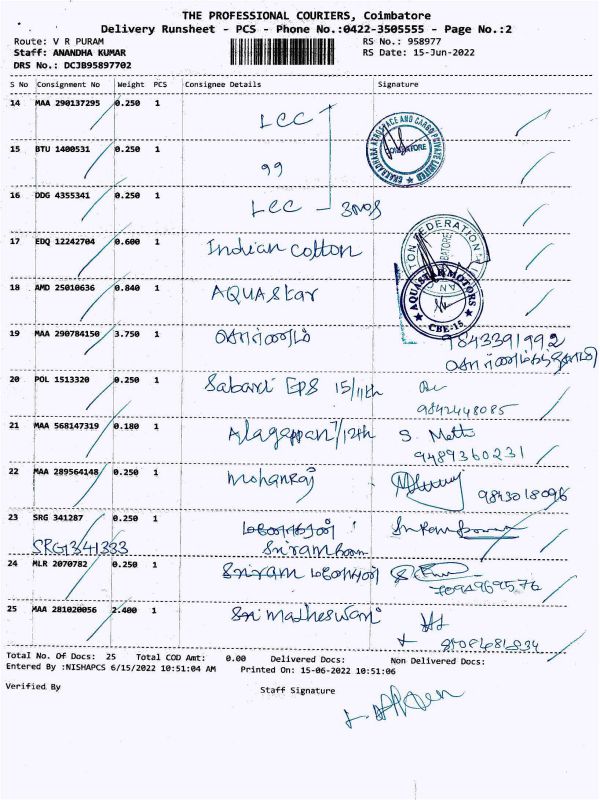 THE PROFESSIONAL COURIERS, Coimbatore
Delivery Runsheet - PCS - Phone No.:0422-3505555 - Page No.:2
Route: V R PURAM RS No.: 958977
Staff: ANANDHA KUMAR RS Date: 15-Jun-2022
DRS No.: DCJB95897702
S No Consignment No Weight PCS Consignee Details Signature
14 MAA 290137295 0.250 1 LCC
CHAKRADHARA AEROSPACE AND CARGO PRIVATE LIMITED COIMBATORE
15 BTU 1400531 0.250 1 99
16 DDG 4355341 0.250 1 LCC
17 EDQ 12242704 0.600 1 Indian cotton
18 AMD 25010636 0.840 1 AQUAStar
AQUASTAR MOTORS CBE-15
19 MAA 290784150 3.750 1 9843391992
20 POL 1513320 0.250 1 EPS 15/11th
9842448085
21 MAA 568147319 0.180 1 Alagappan 7/12th S.
9489360231
22 MAA 289564148 0.250 1 Mohanraj 9843018096
23 SRG 341287 0.250 1
SRG 341333 Sriram
24 MLR 2070782 0.250 1 Sriram
25 MAA 281020056 2.400 1 Sri
Total No. Of Docs: 25 Total COD Amt: 0.00 Delivered Docs: Non Delivered Docs:
Entered By :NISHAPCS 6/15/2022 10:51:04 AM Printed On: 15-06-2022 10:51:06
Verified By Staff Signature